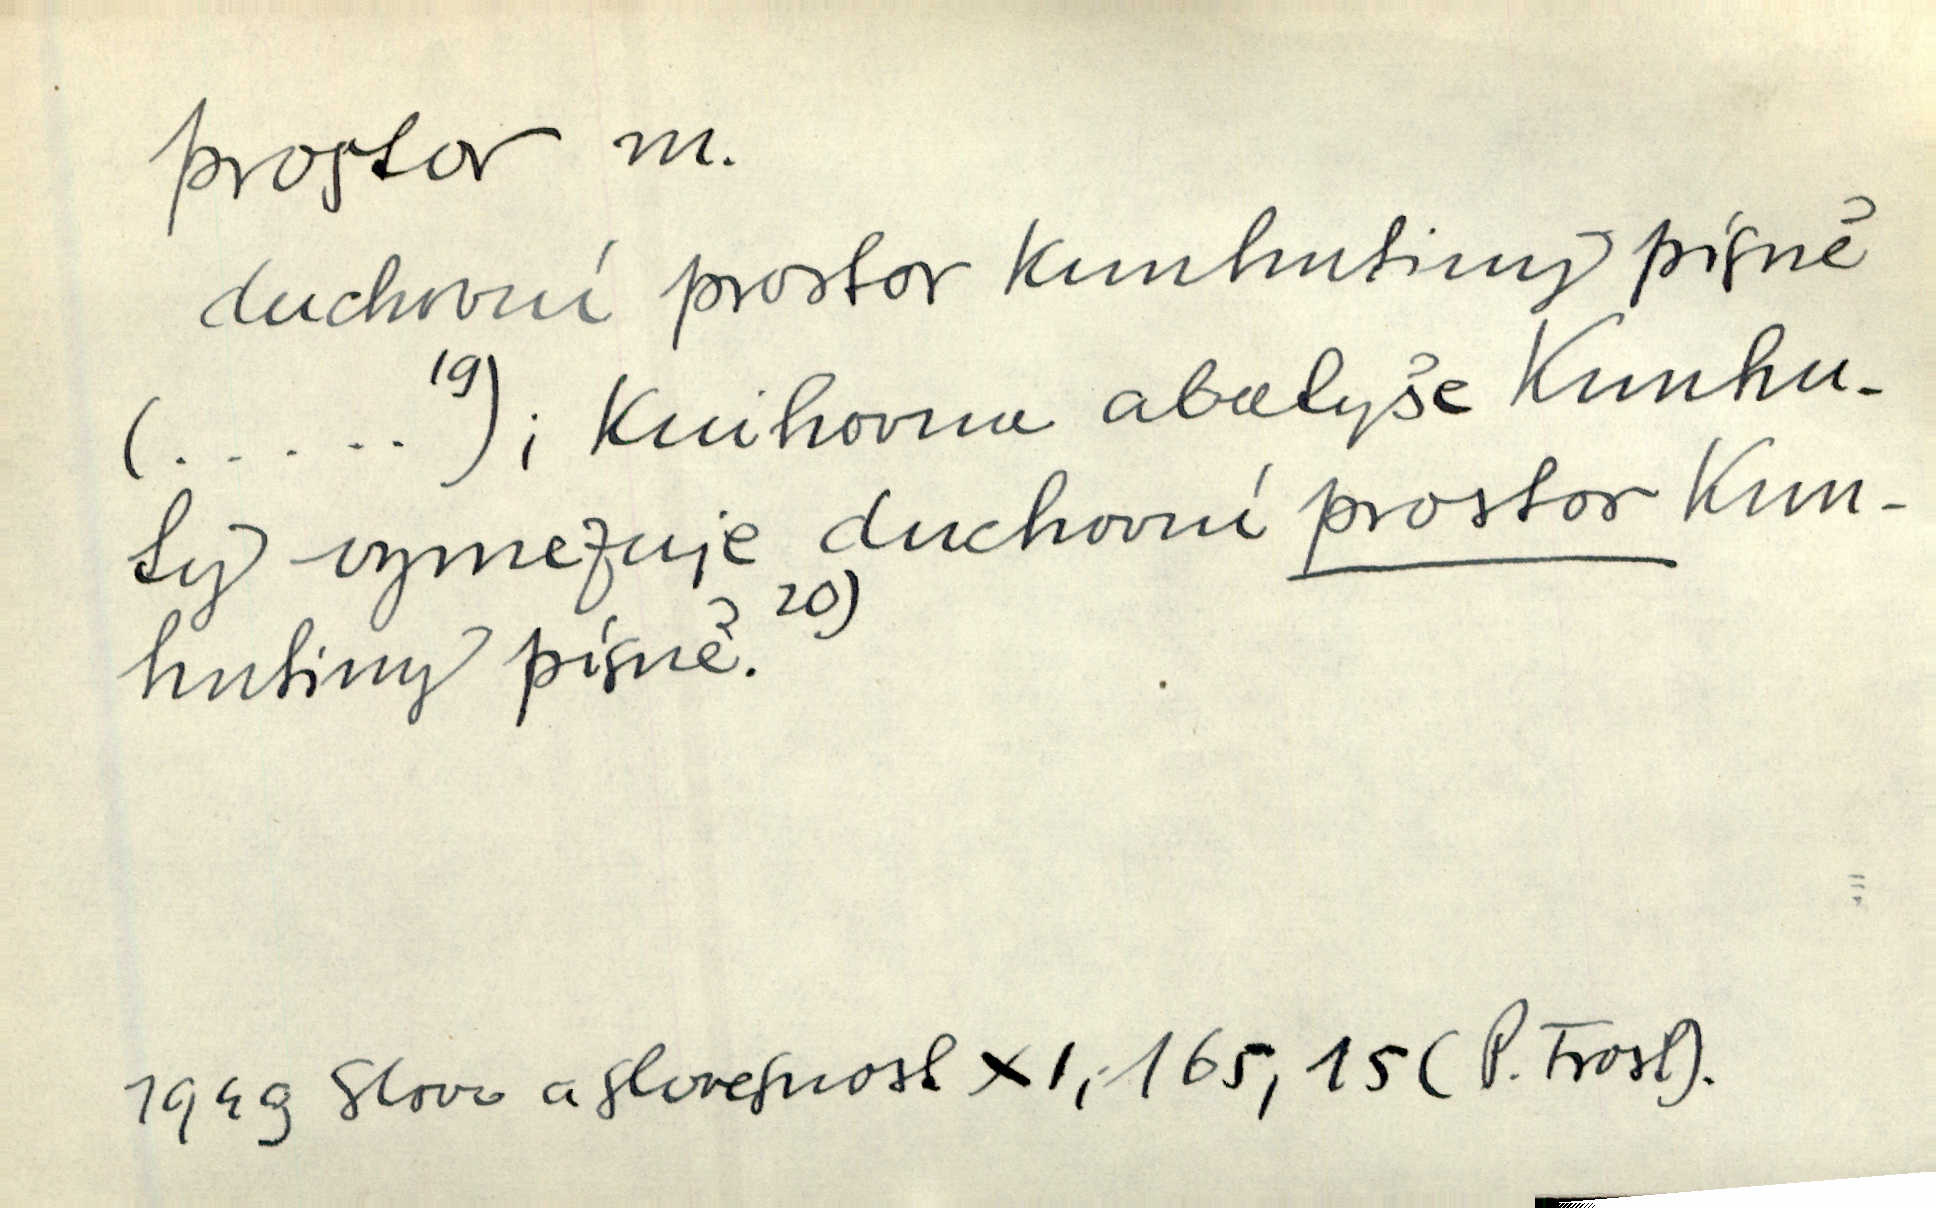 prostor m.
duchovní prostor Kunhutiny písně
(.....19); Knihovna abatyše Kunhu-
ty vymezuje duchovní prostor Kun-
hutiny písně.20)
1949 Slovo a slovesnost XI, 165, 15 (P. Trost).